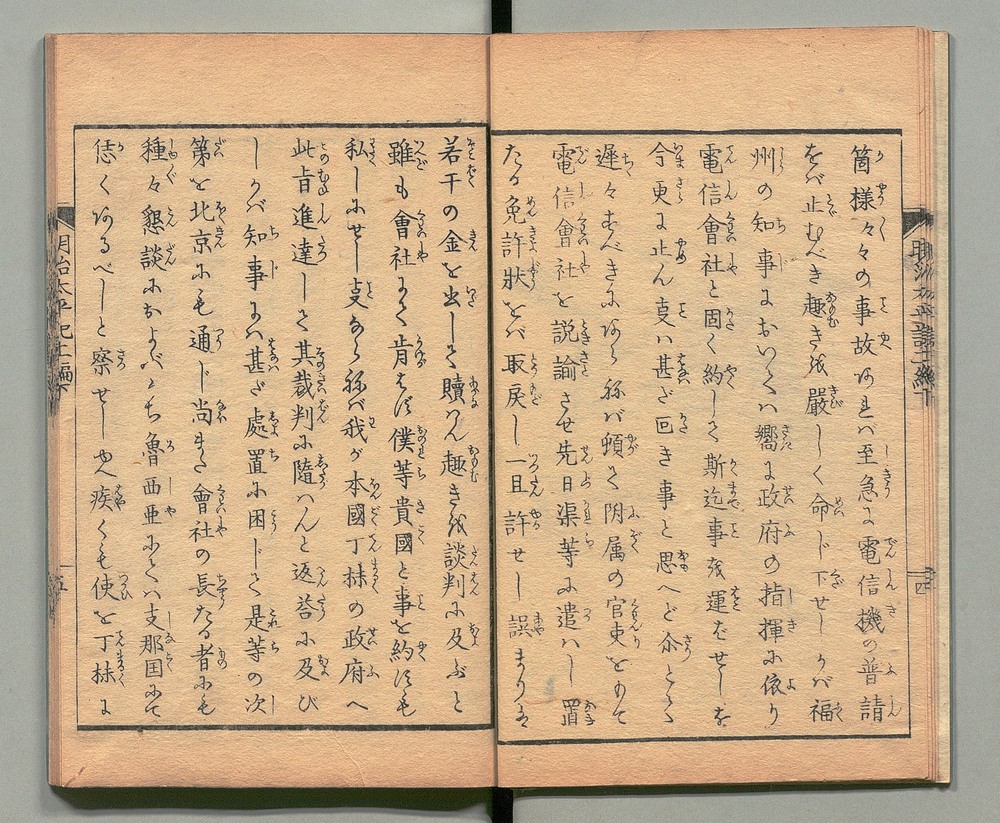 箇様々々の事故あれバ至急に電信機の普請
をバ止むべき趣きを嚴しく命じ下せしかバ福
州の知事におゐてハ嚮に政府の指揮に依り
電信會社と固く約して斯迄事を運ばせしを
今更に止ん事ハ甚だ回き事と思へど余とて
遲々すべきにあらねバ頓て附属の官吏をもて
電信會社を説諭させ先日渠等に遣ハし置
たる免許狀をバ取戻し一旦許せし誤まりは
若干の金を出して贖ハん趣きを談判に及ぶと
雖も會社にて肯はず僕等貴國と事を約すも
私しにせし事ならねバ我が本國丁抹の政府へ
此旨進達して其裁判に隨ハんと返荅に及び
しかバ知事にハ甚だ處置に困じて是等の次
第を北京にも通じ尚また會社の長たる者にも
種々懇談におよべバ魯西亜にてハ支那国にて
恁くあるべしと察せしや疾くも使を丁抹に
明治太平記十編下
四
五